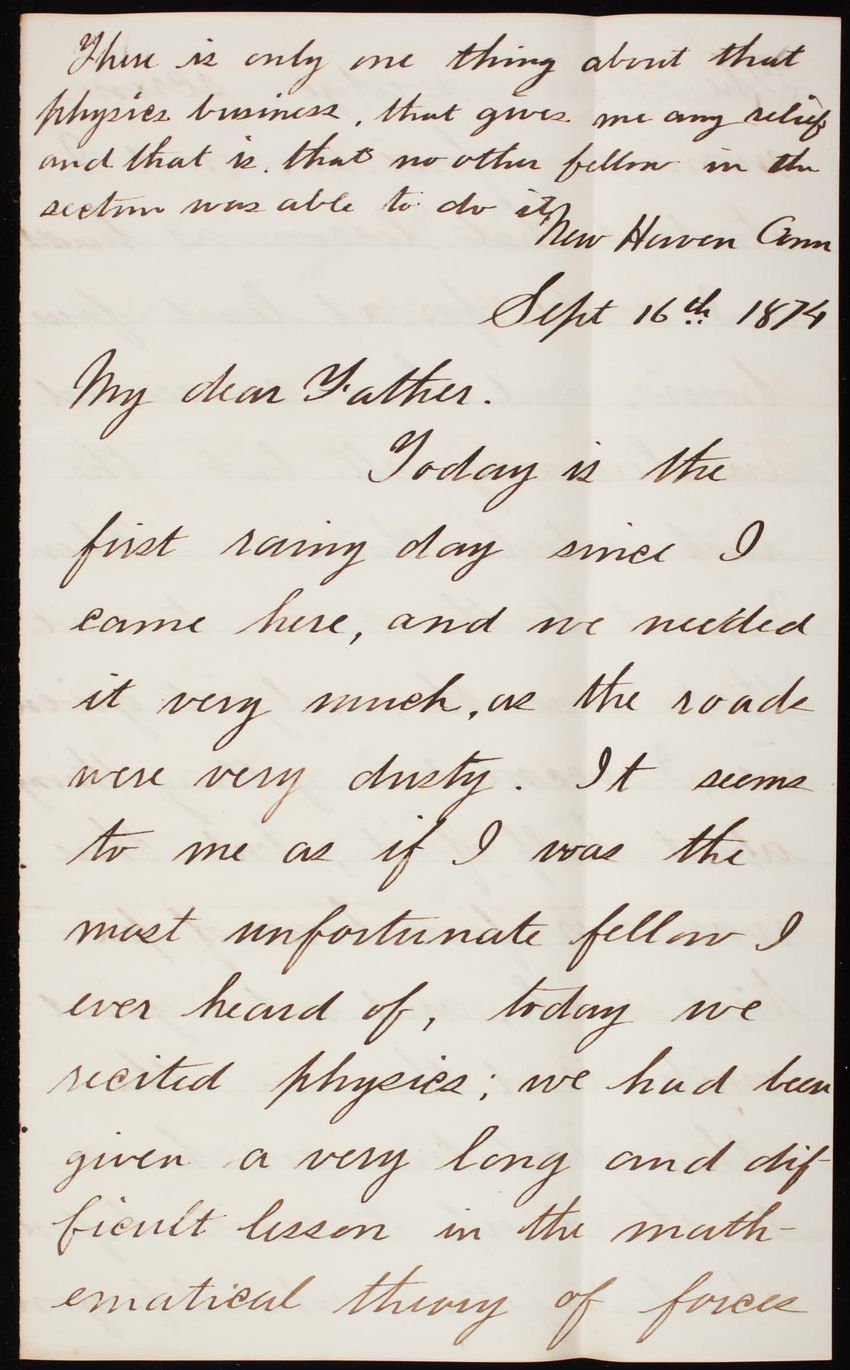 There is only one thing about that
physics business, that gives me any relief
and that is, that no other fellow in the
section was able to do it,
New Haven Conn
Sept 16th 1874
My dear Father.
Today is the
first rainy day since I
came here, and we needed
it very much, as the roads
were very dusty. It seems
to me as if I was the
most unfortunate fellow I
ever heard of, today we
recited physics; we had been
given a very long and dif-
ficult lesson in the math-
ematical theory of forces